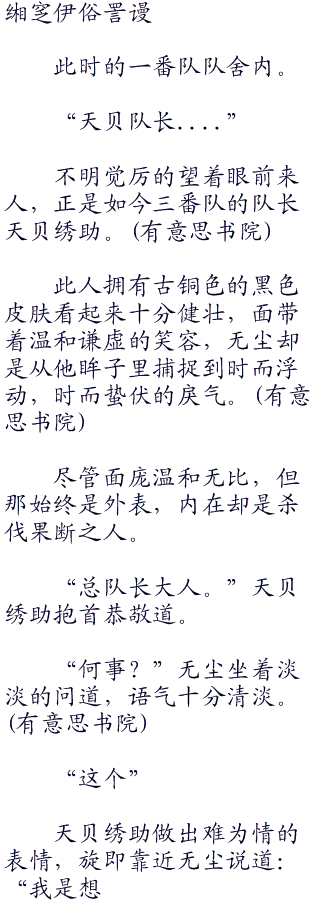 缃穸伊俗詈谩
此时的一番队队舍内。
“天贝队长....”
不明觉厉的望着眼前来
人，正是如今三番队的队长
天贝绣助。(有意思书院)
此人拥有古铜色的黑色
皮肤看起来十分健壮，面带
着温和谦虚的笑容，无尘却
是从他眸子里捕捉到时而浮
动，时而蛰伏的戾气。(有意
思书院)
尽管面庞温和无比，但
那始终是外表，内在却是杀
伐果断之人。
“总队长大人。”天贝
绣助抱首恭敬道。
“何事？”无尘坐着淡
淡的问道，语气十分清淡。
(有意思书院)
“这个”
天贝绣助做出难为情的
表情，旋即靠近无尘说道：
“我是想